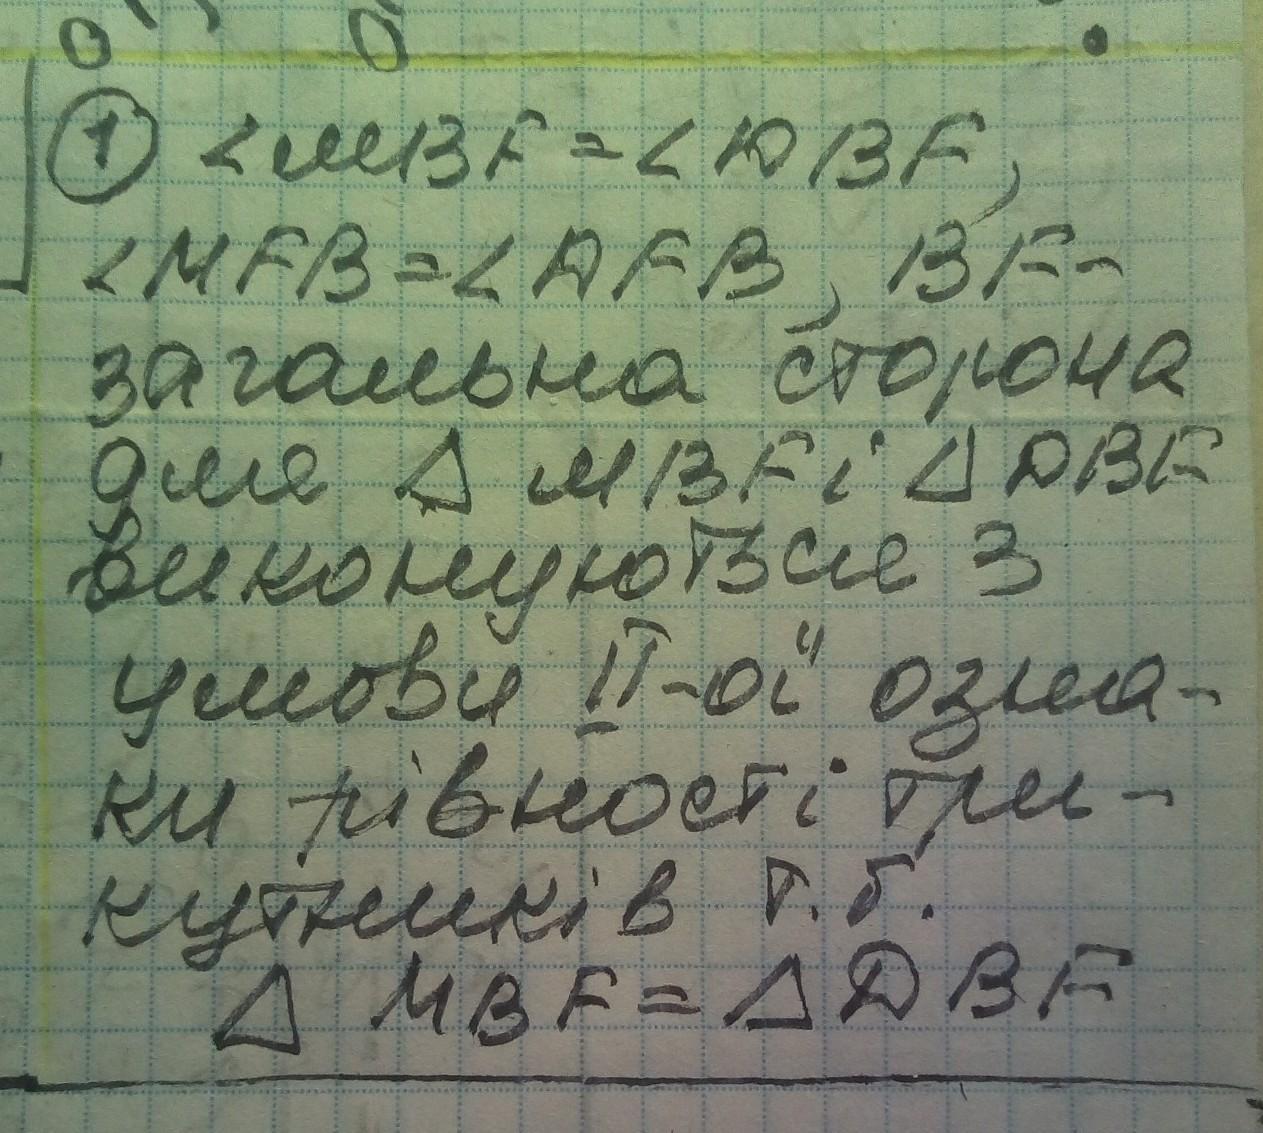 ① ∠MBF = ∠DBF,
∠MFB = ∠DFB, BF -
загальна сторона
для Δ MBF і Δ DBF
виконуються 3
умови II-ої озна-
ки рівності три-
кутників т.б.
Δ MBF = Δ DBF